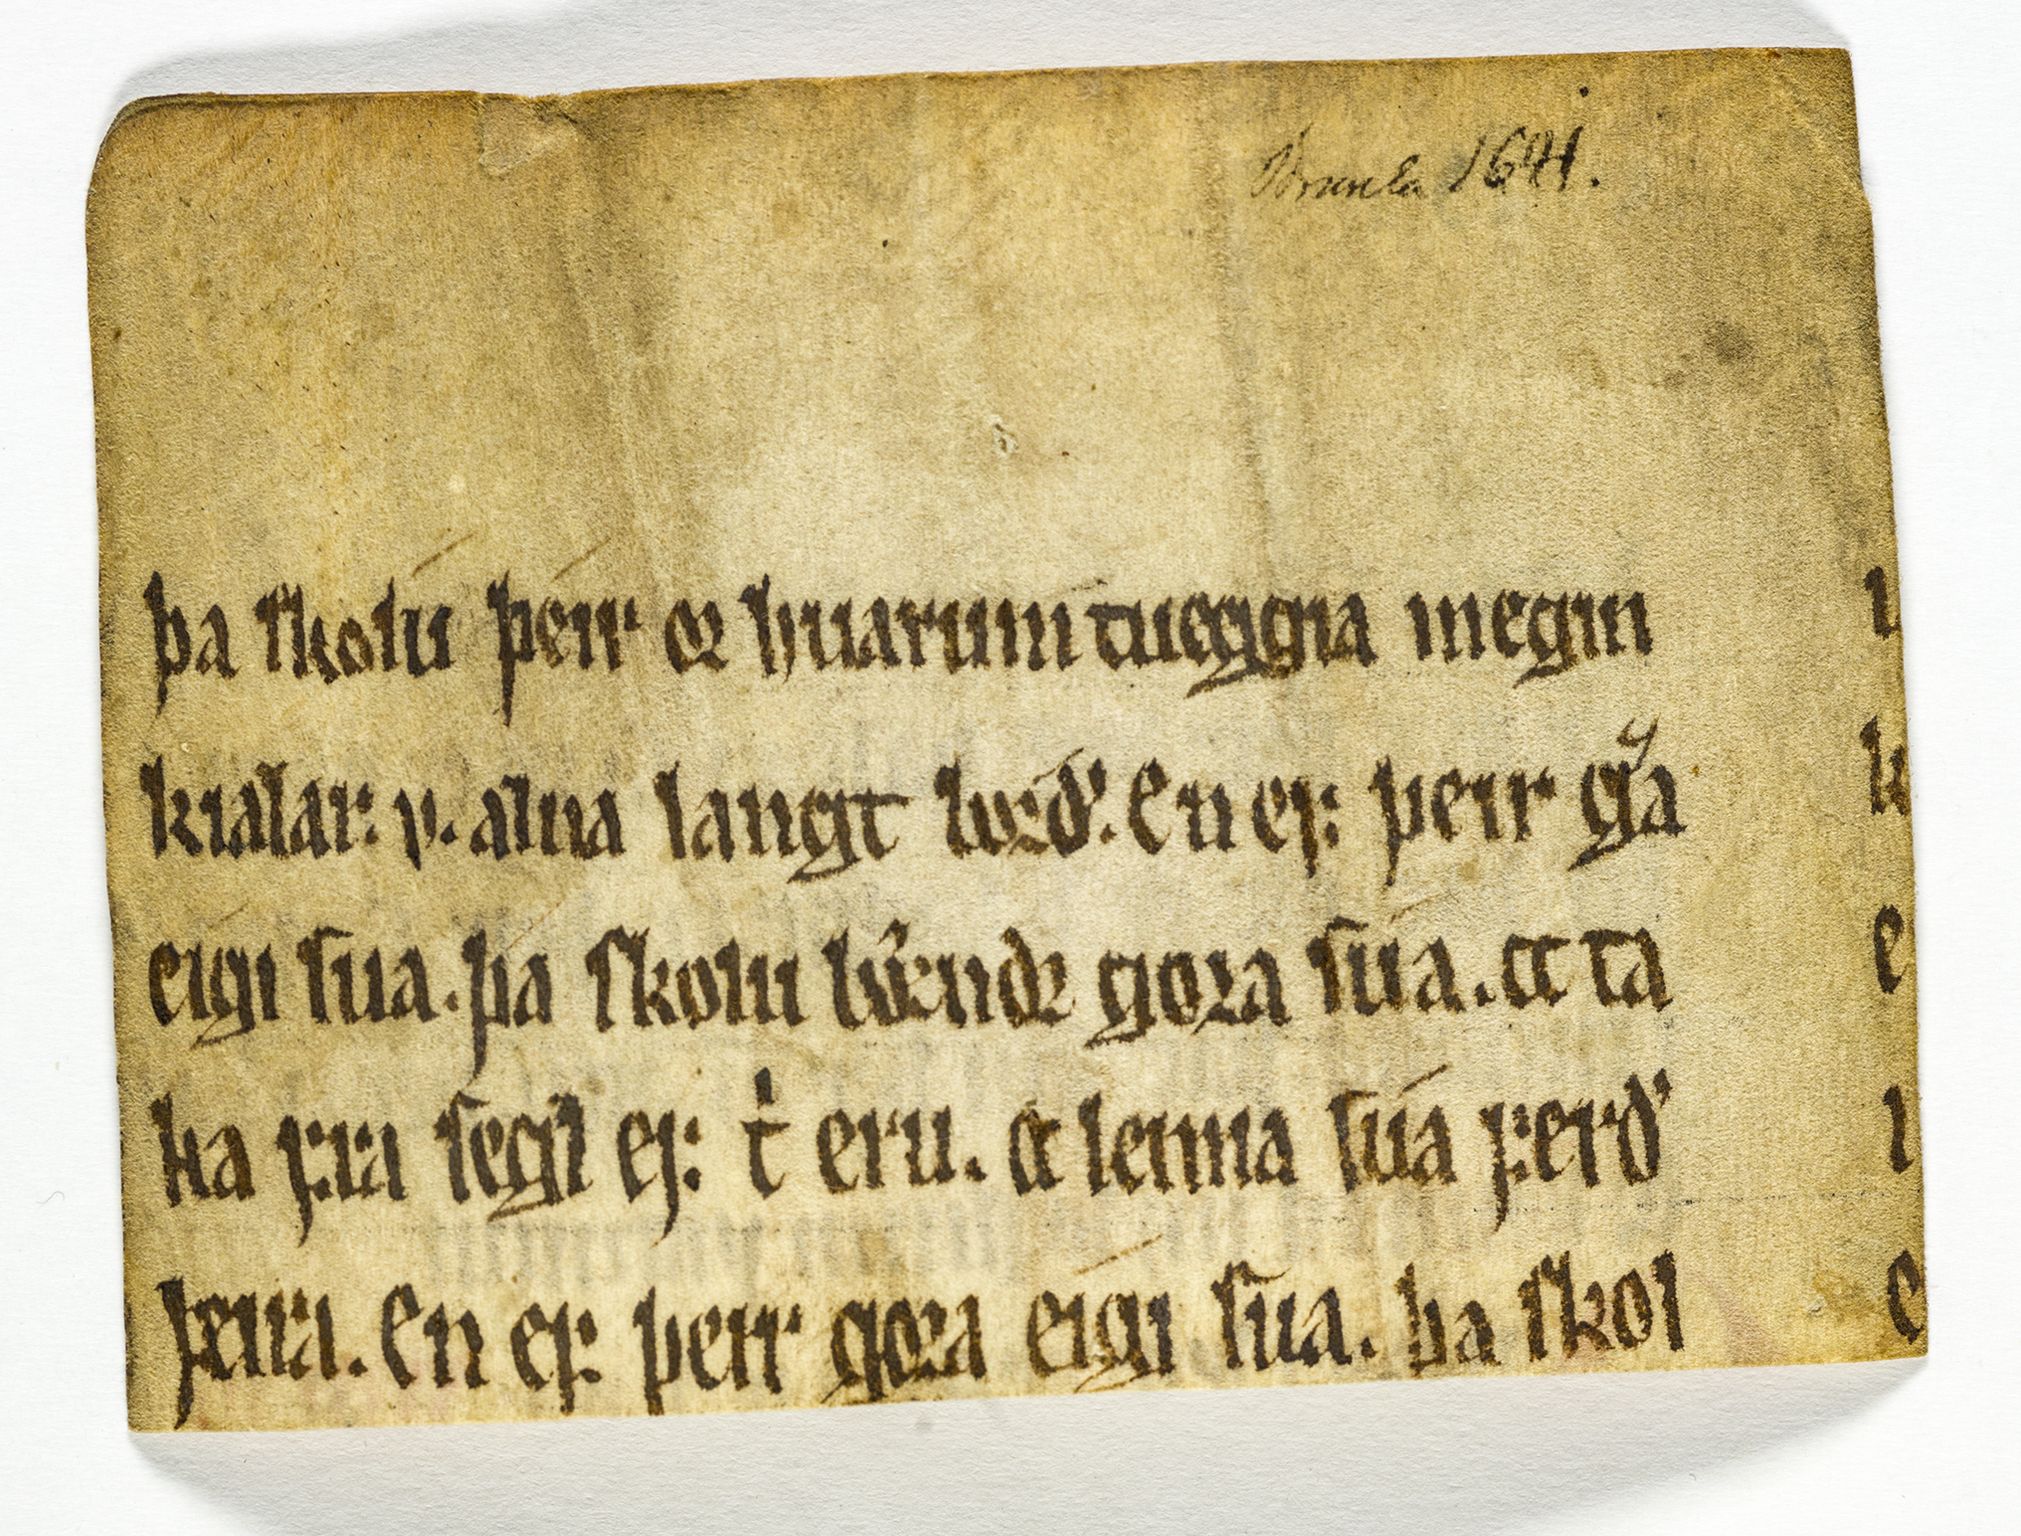 1641.
þa skolu þeir or huarumtueggia megin
kialar. v. alna langt borð. En ef þeir gͤa
eigi sua. þa skolu bǿndr gora sua. at ta
ka fra segl ef t̉ eru. at leima sua ferð
þeira. En ef þeir gora eigi sua. þa skol
k
e
ı
e